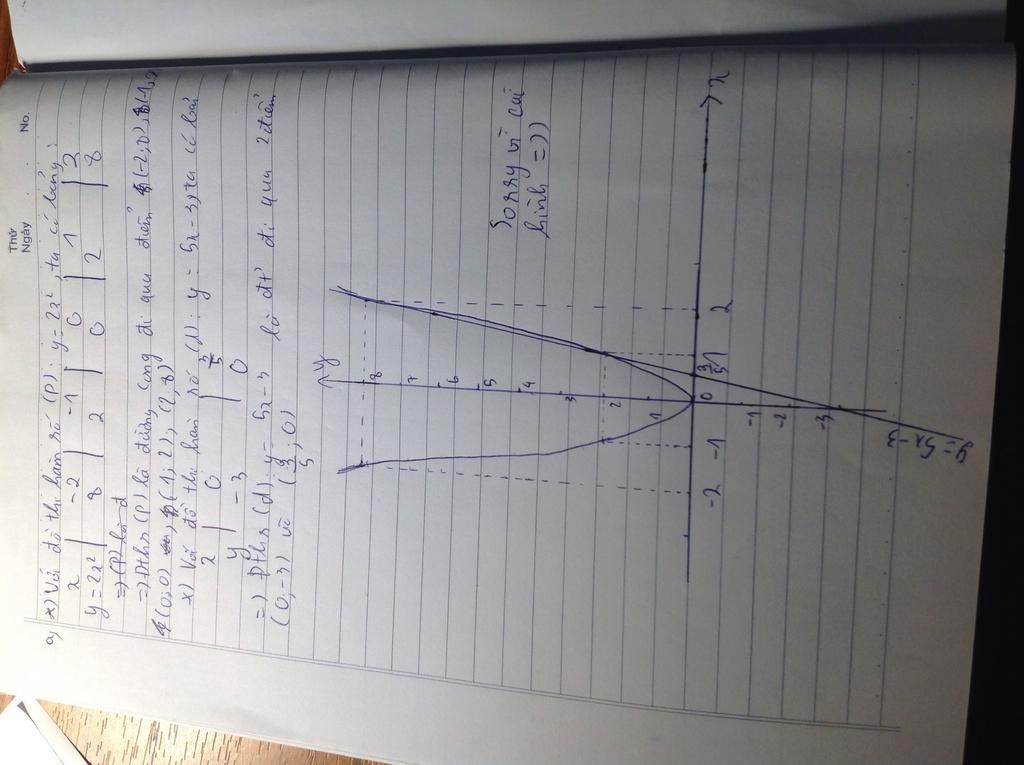 Thứ
Ngày
No.
a) *) Với đồ thị hàm số (P): y = 2x², ta có bảng:
x | -2 | -1 | 0 | 1 | 2
y = 2x² | 8 | 2 | 0 | 2 | 8
=) (P) là đ
=) Đths (P) là đường cong đi qua điểm (-2;8);
(0;0) (1;2), (2,8)
*) Với đồ thị hàm số (d): y = 5x - 3, ta có
x | 0 | 3/5
y | -3 | 0
=) Đths (d): y = 5x - 3 là đt' đi qua 2 điểm
(0,-3) và (3/5, 0)
Sorry vì cái
hình =))
y
8
7
6
5
4
3
2
1
x
-2 -1 0 3/5 1 2
-1
-2
-3
y = 5x - 3